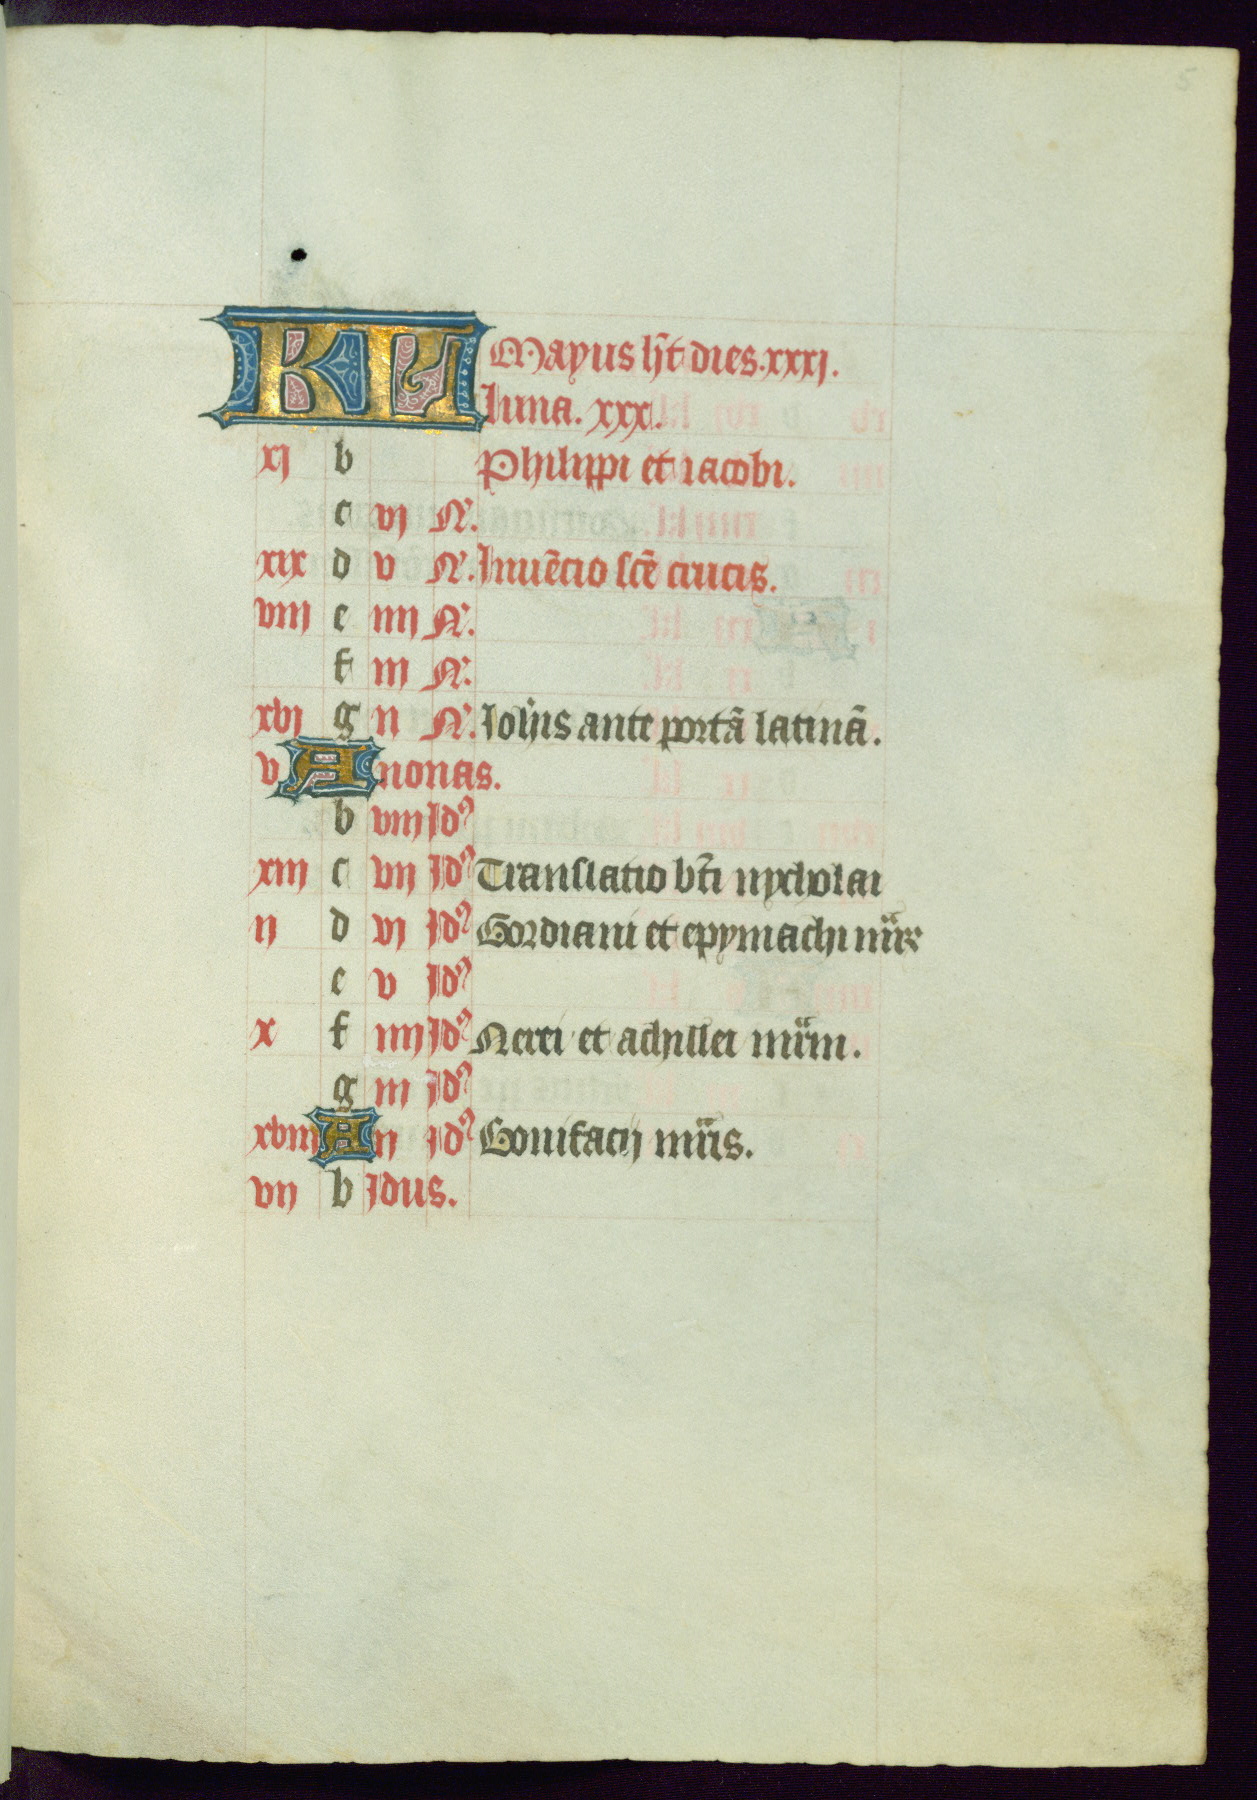 5
KL Mayus hȓt dies. xxxj.
luna. xxx.
xj b Philippi et iacobi.
c vj N.
xix d v N. Inuēcio scē crucis.
viij e iiij N.
f iij N.
xvj g ij N. Ioh̄is ante portā latinā.
v A nonas.
b viij Id
xiij c vij Id Translatio bt̄i nycholai
ij d vj Id Gordiani et epymachi mr̄is
e v Id
x f iiij Id Nerei et achillei mr̄m.
g iij Id
xviij A ij Id Bonifacij mr̄is.
vij b Idus.